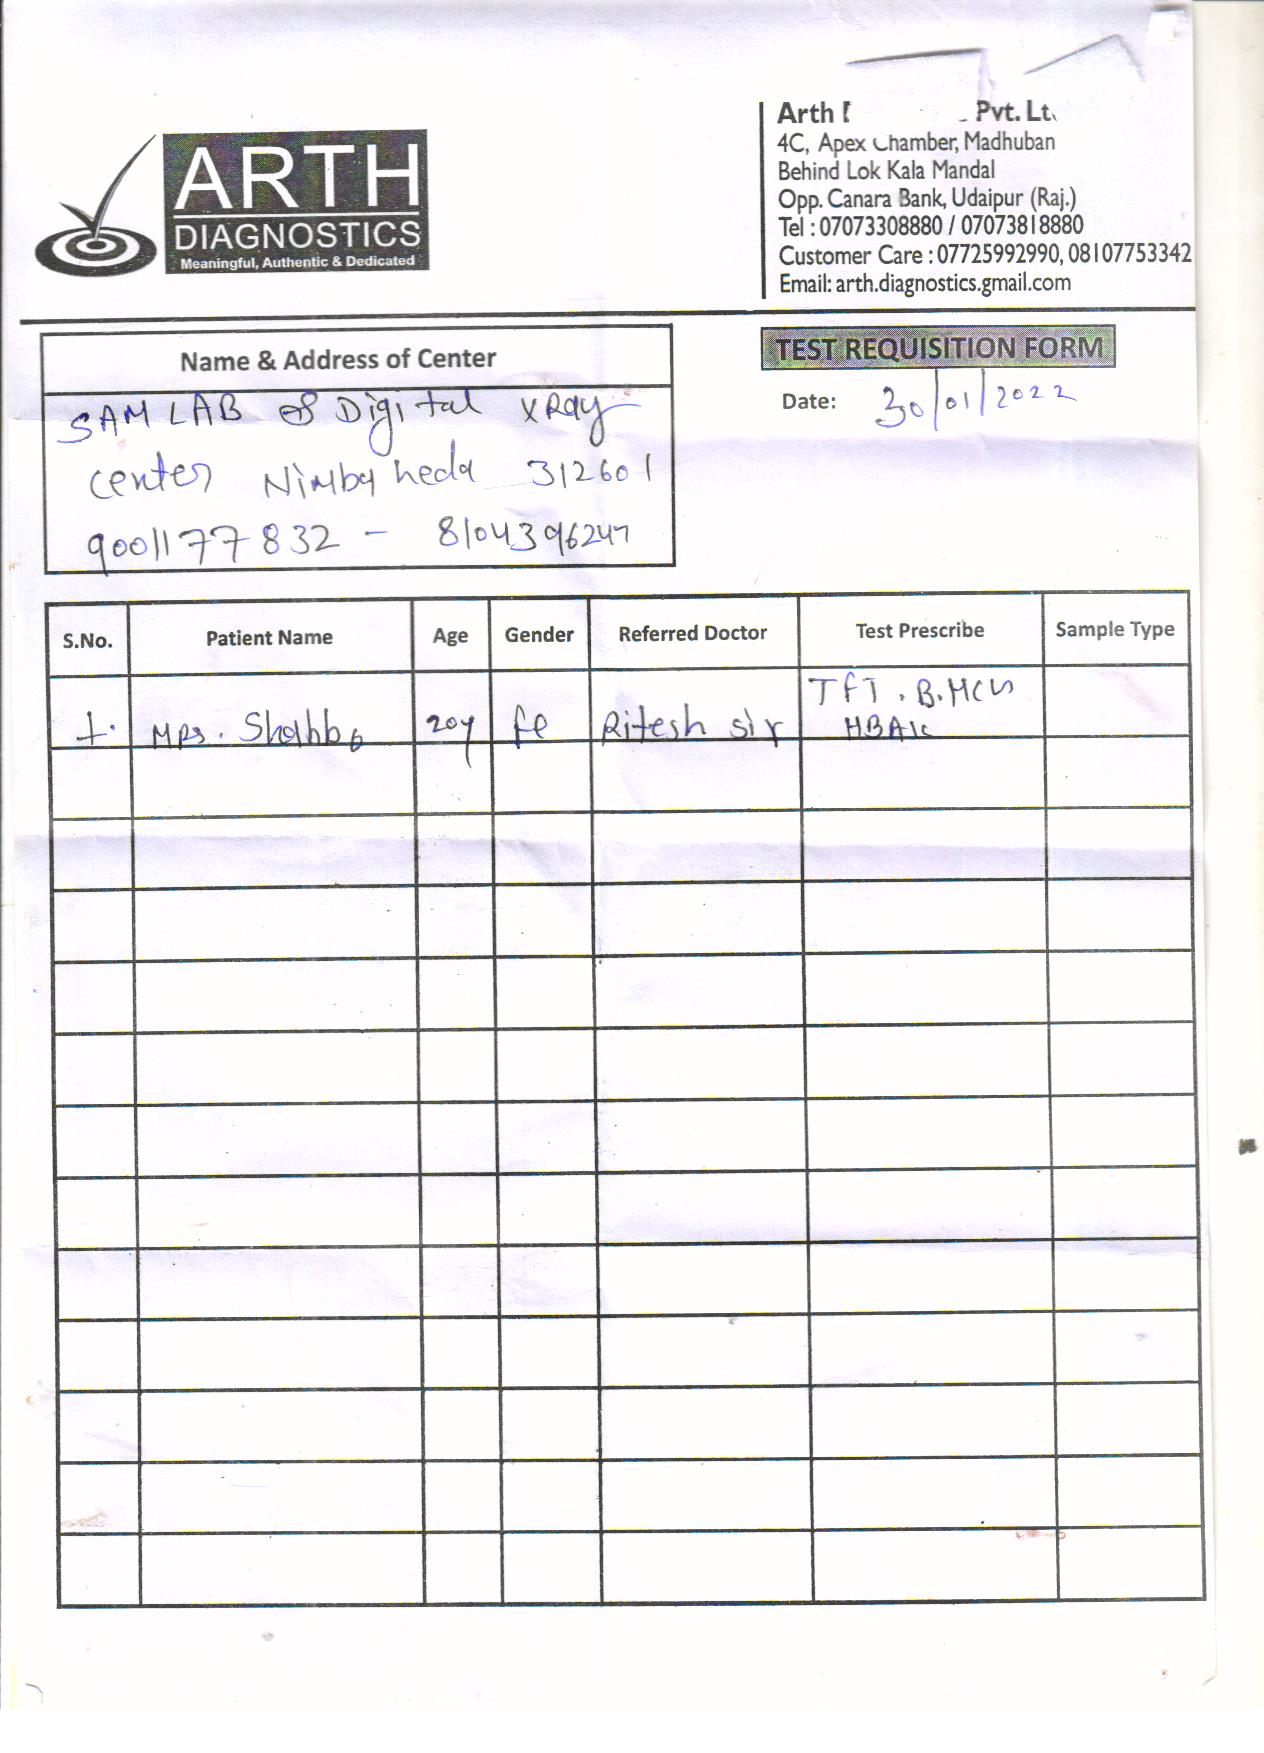 ARTH
DIAGNOSTICS
Meaningful, Authentic & Dedicated
Arth Pvt. Lt
4C, Apex Chamber, Madhuban
Behind Lok Kala Mandal
Opp. Canara Bank, Udaipur (Raj.)
Tel : 07073308880 / 07073818880
Customer Care : 07725992990, 08107753342
Email: arth.diagnostics.gmail.com
Name & Address of Center
SAM LAB & Digital XRay
center Nimbaheda 312601
9001177832 - 8104396247
TEST REQUISITION FORM
Date: 30/01/2022
S.No. Patient Name Age Gender Referred Doctor Test Prescribe Sample Type
1. Mrs. Shabbo 20y fe Ritesh sir TFT . B.HCG
HBA1c